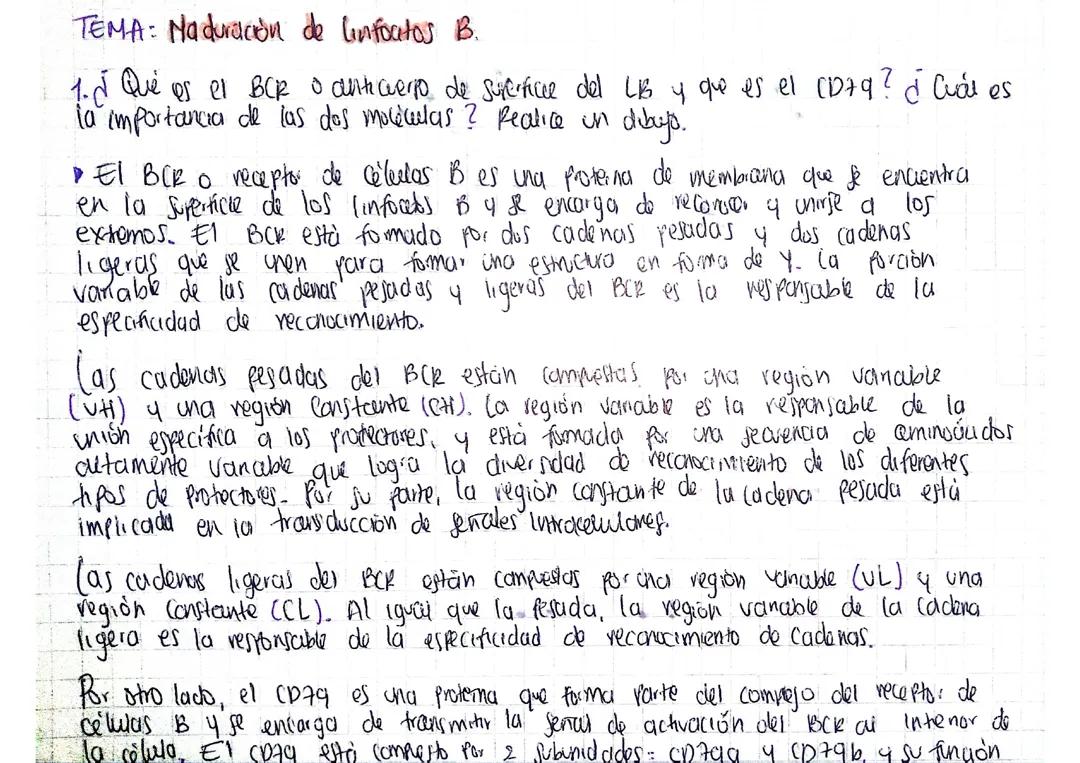 TEMA: Maduración de linfocitos B.
1. ¿ Qué es el BCR o anticuerpo de superficie del LB y que es el CD79? ¿ Cuál es
la importancia de las dos moléculas? Realice un dibujo.
El BCR o receptor de células B es una proteína de membrana que se encuentra
en la superficie de los linfocitos B y se encarga de reconocer y unirse a los
extremos. El BCR está formado por dos cadenas pesadas y dos cadenas
ligeras que se unen para formar una estructura en forma de Y. La porción
variable de las cadenas pesadas y ligeras del BCR es la responsable de la
especificidad de reconocimiento.
Las cadenas pesadas del BCR están compuestas por una región variable
(VH) y una región constante (CH). La región variable es la responsable de la
unión específica a los protectores, y está formada por una secuencia de aminoácidos
altamente variable que logra la diversidad de reconocimiento de los diferentes
tipos de protectores. Por su parte, la región constante de la cadena pesada está
implicada en la transducción de señales intracelulares.
Las cadenas ligeras del BCR están compuestas por una región variable (VL) y una
región constante (CL). Al igual que la pesada, la región variable de la cadena
ligera es la responsable de la especificidad de reconocimiento de cadenas.
Por otro lado, el CD79 es una proteína que forma parte del complejo del receptor de
células B y se encarga de transmitir la señal de activación del BCR al interior de
la célula. El CD79 está compuesto por 2 subunidades: CD79a y CD79b, y su función